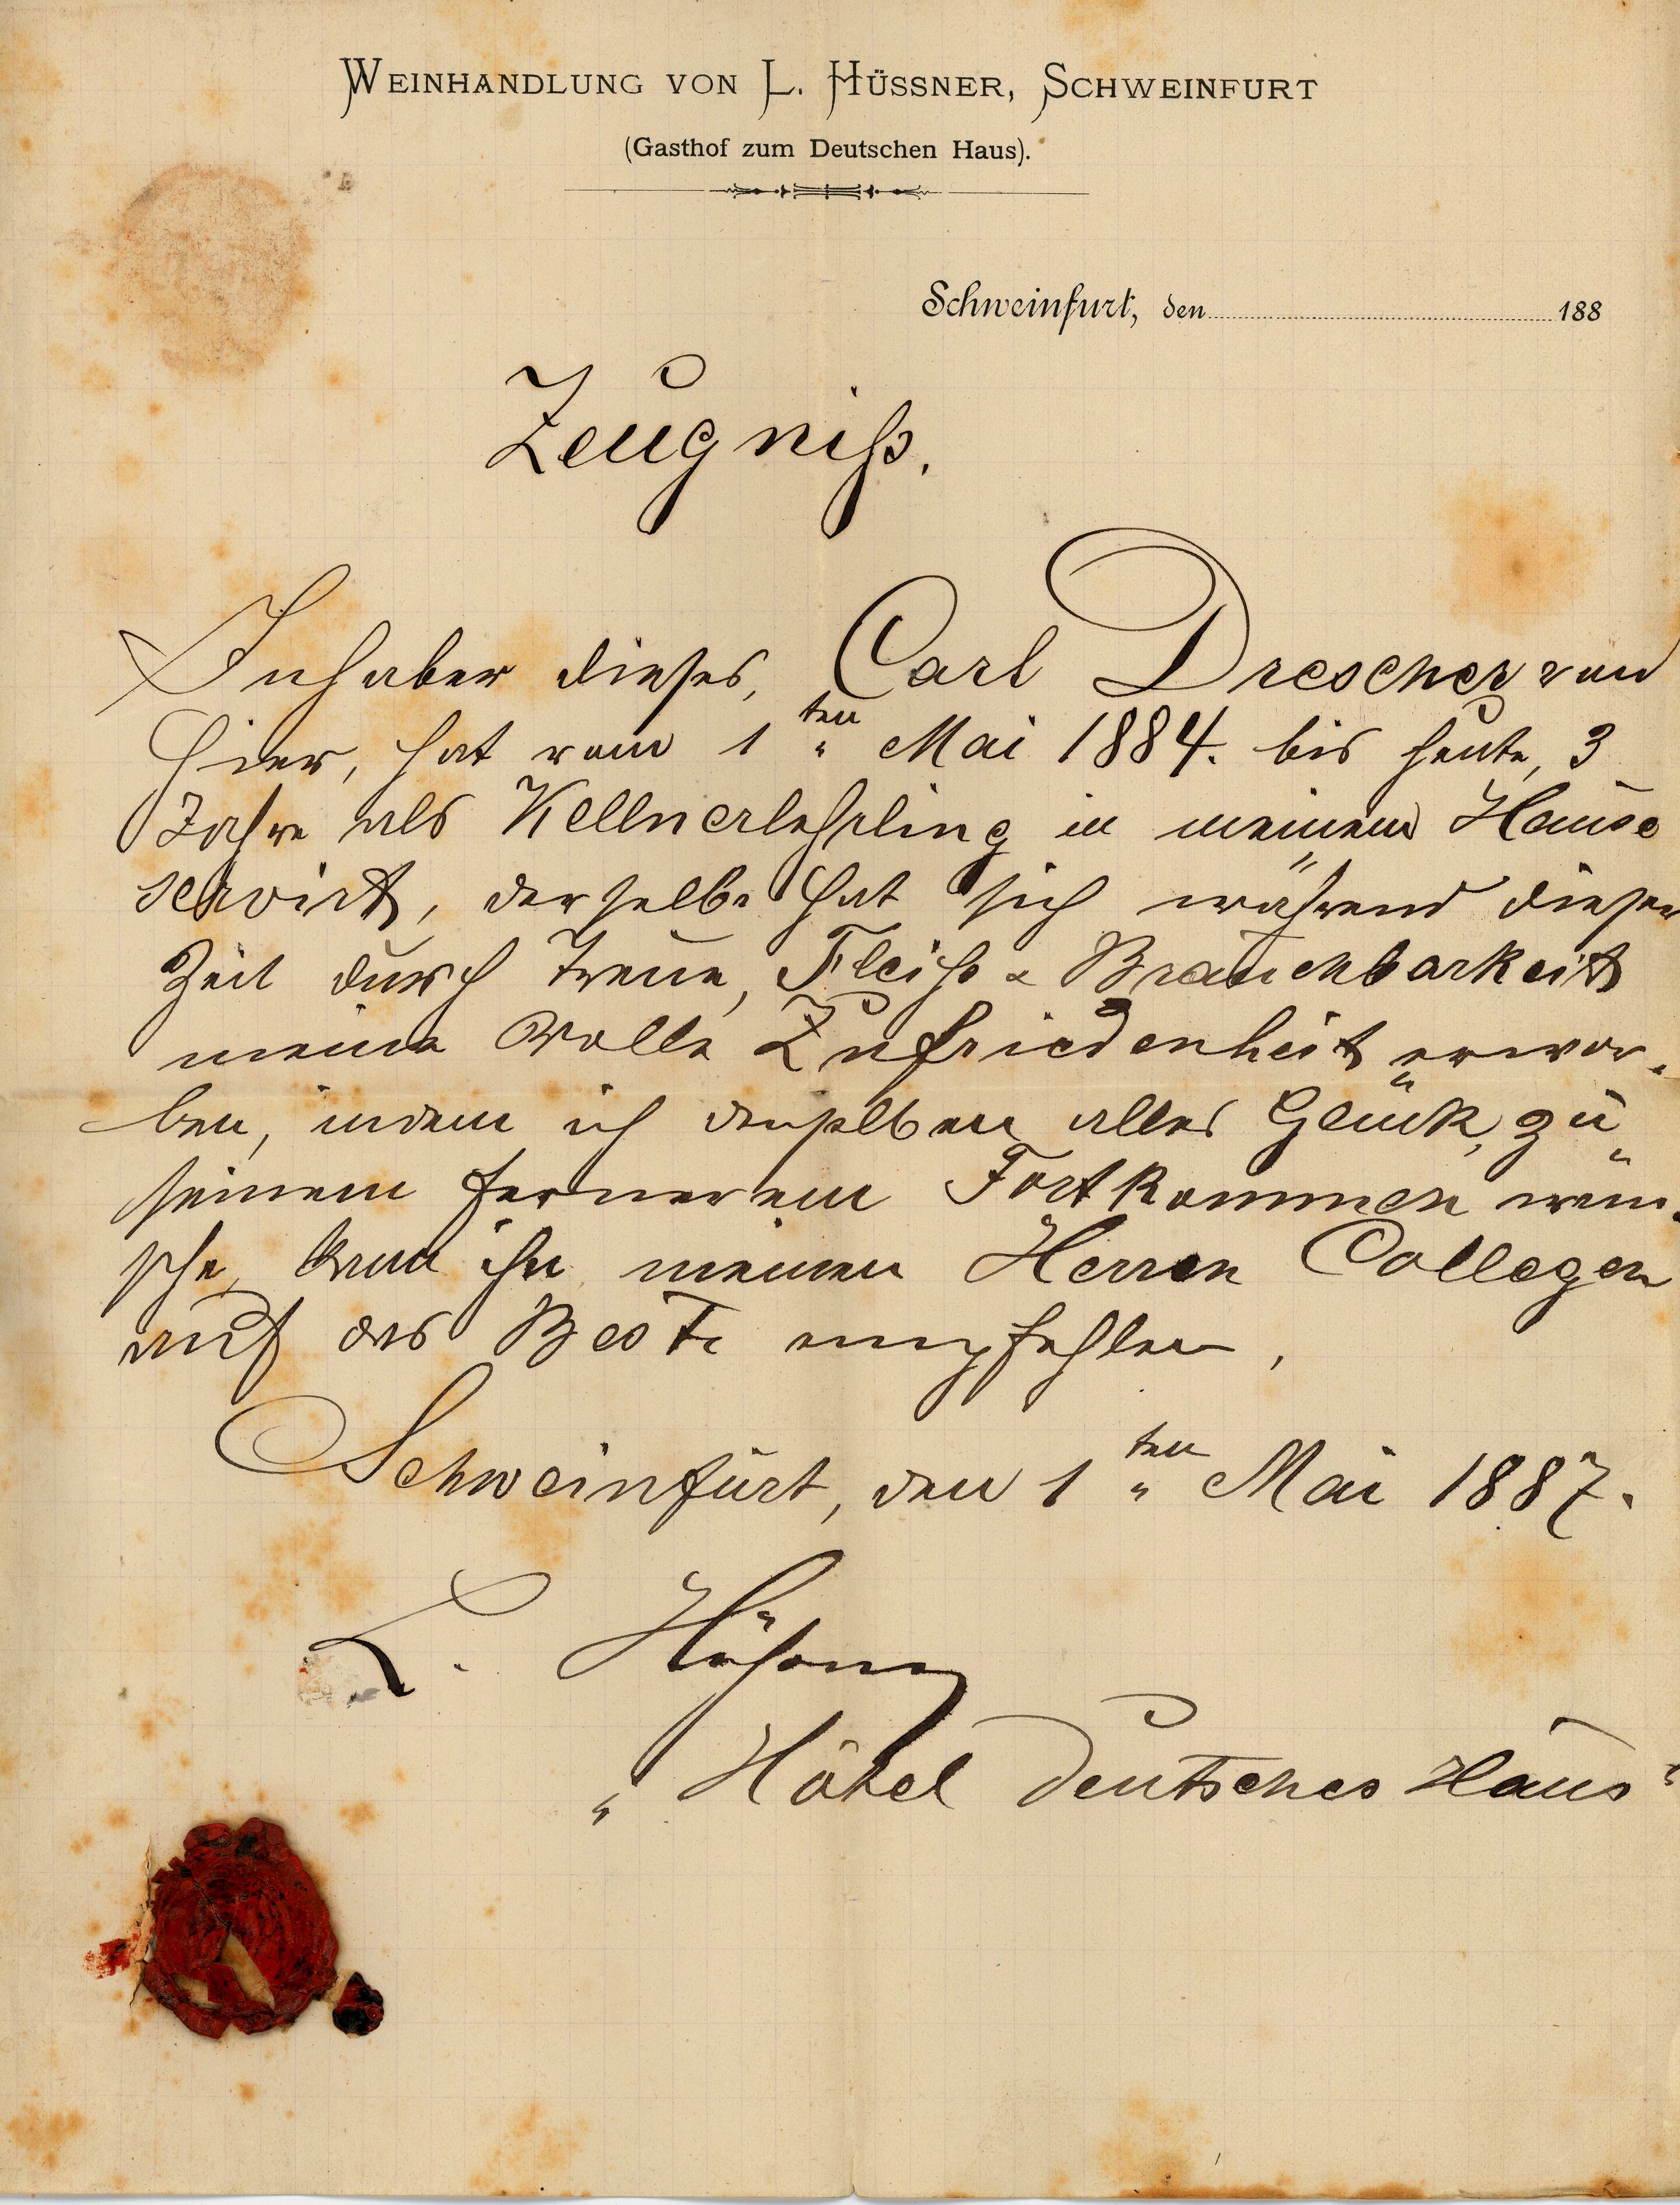 WEINHANDLUNG VON L. HÜSSNER, SCHWEINFURT
(Gasthof zum Deutschen Haus).
Schweinfurt, den 188
Zeugniß.
Inhaber dieses, Carl Drescher von
hier, hat vom 1ten Mai 1884. bis heute, 3
Jahre als Kellnerlehrling in meinem Hause
servirt, derselbe hat sich während dieser
Zeit durch Treue, Fleiß & Brauchbarkeit
meine volle Zufriedenheit erwor-
ben, indem ich denselben alles Glück, zu
seinem fernerem Fortkommen wün-
sche, kann ihn meinen Herren Collegen
auf das Beste empfehlen,
Schweinfurt, den 1ten Mai 1887.
L. Hüßner
"Hôtel Deutsches Haus"